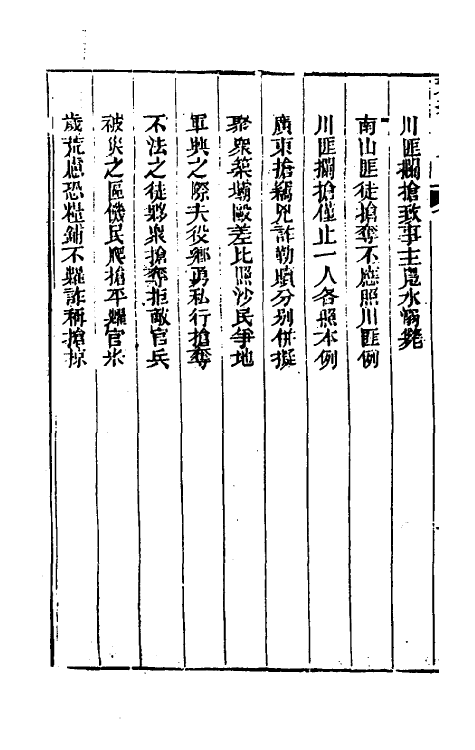 川匪攔搶致事主鳧水溺斃
南山匪徒搶奪不應照川匪例
川匪攔搶僅止一人各照本例
廣東搶竊兇詐勒贖分别併擬
聚衆築壩毆差比照沙民爭地
軍興之際夫役鄉勇私行搶奪
不法之徒夥衆搶奪拒敵官兵
被災之區饑民爬搶平糶官米
歲荒慮恐糧鋪不糶詐稱搶掠